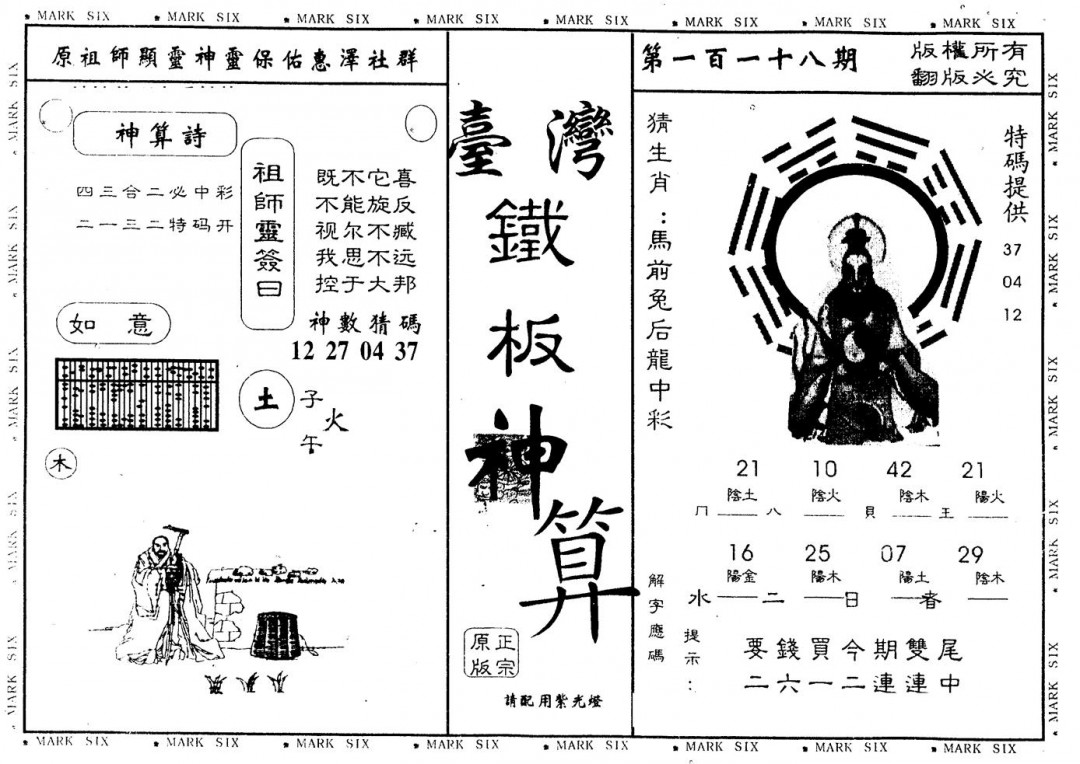 MARK SIX MARK SIX MARK SIX MARK SIX MARK SIX MARK SIX MARK SIX MARK SIX
原祖師顯靈神靈保佑惠澤社群
神算詩
四三合二必中彩
二一三二特码开
祖師靈簽曰
既不它喜
不能旋反
视尔不臧
我思不远
控于大邦
神數猜碼
12 27 04 37
如意
土
子
火
午
木
臺灣
鐵
板
神
算
正宗
原版
請配用紫光燈
第一百一十八期
版權所有
翻版必究
猜生肖：馬前兔后龍中彩
特碼提供
37
04
12
21 10 42 21
陰土 陰火 陰木 陽火
八 貝 王
16 25 07 29
陽金 陽木 陽土 陰木
水 二 日 春
解字應碼
提示：
要錢買今期雙尾
二六一二連連中
MARK SIX MARK SIX MARK SIX MARK SIX MARK SIX MARK SIX MARK SIX MARK SIX
MARK SIX MARK SIX MARK SIX MARK SIX MARK SIX
MARK SIX MARK SIX MARK SIX MARK SIX MARK SIX